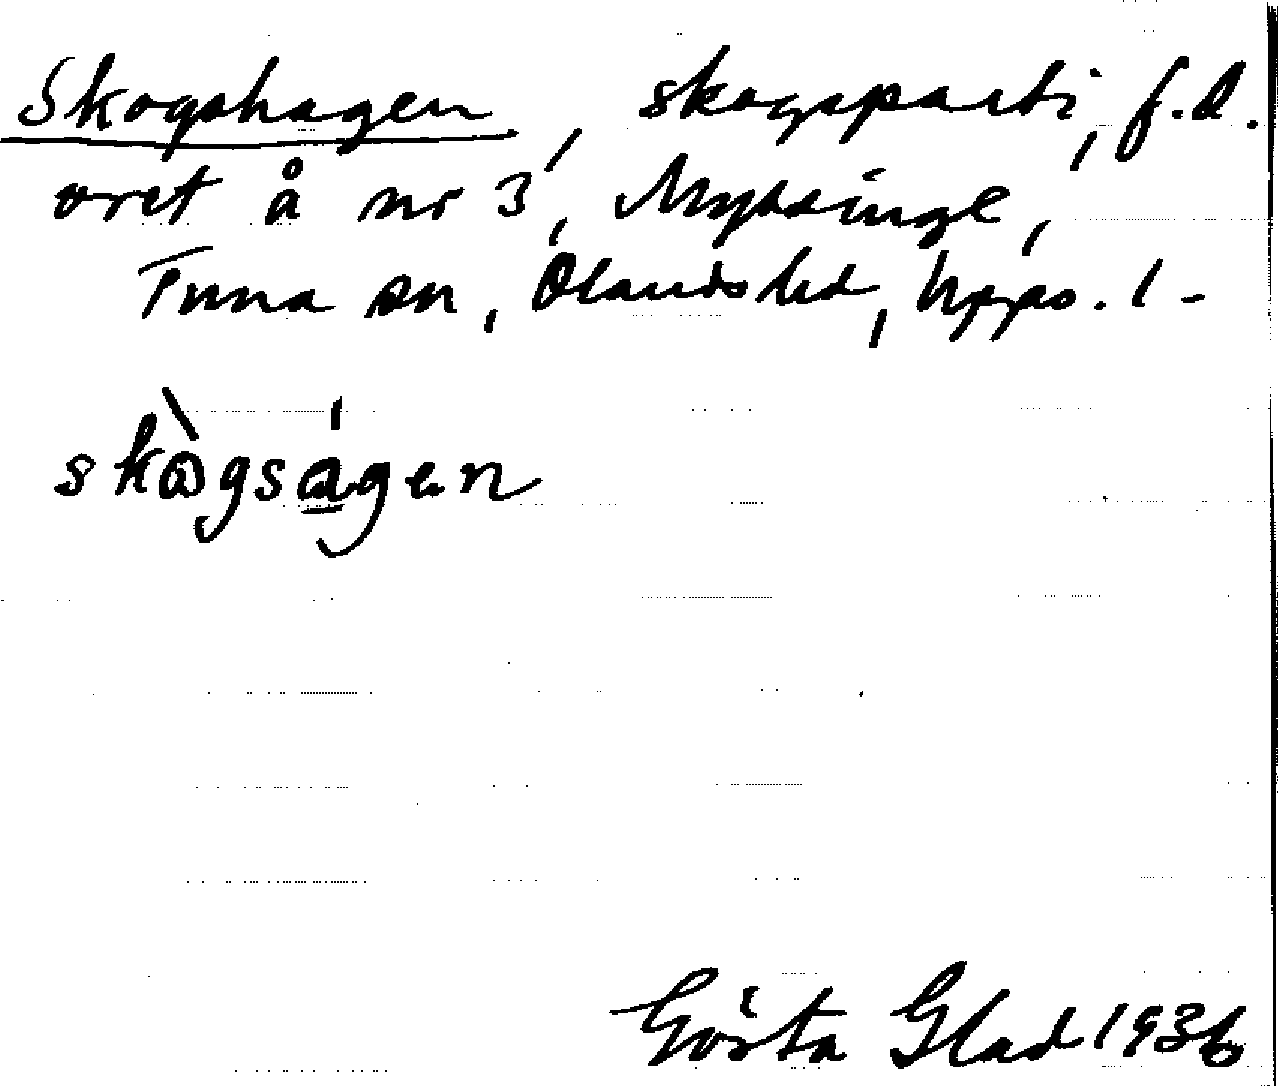 Skogshagen, skogsparti, f.d.
vret å nr 3, Mytsinge,
Tuna sn, Olands hd, Upps. l -
skògságen
Gösta Glad 1936